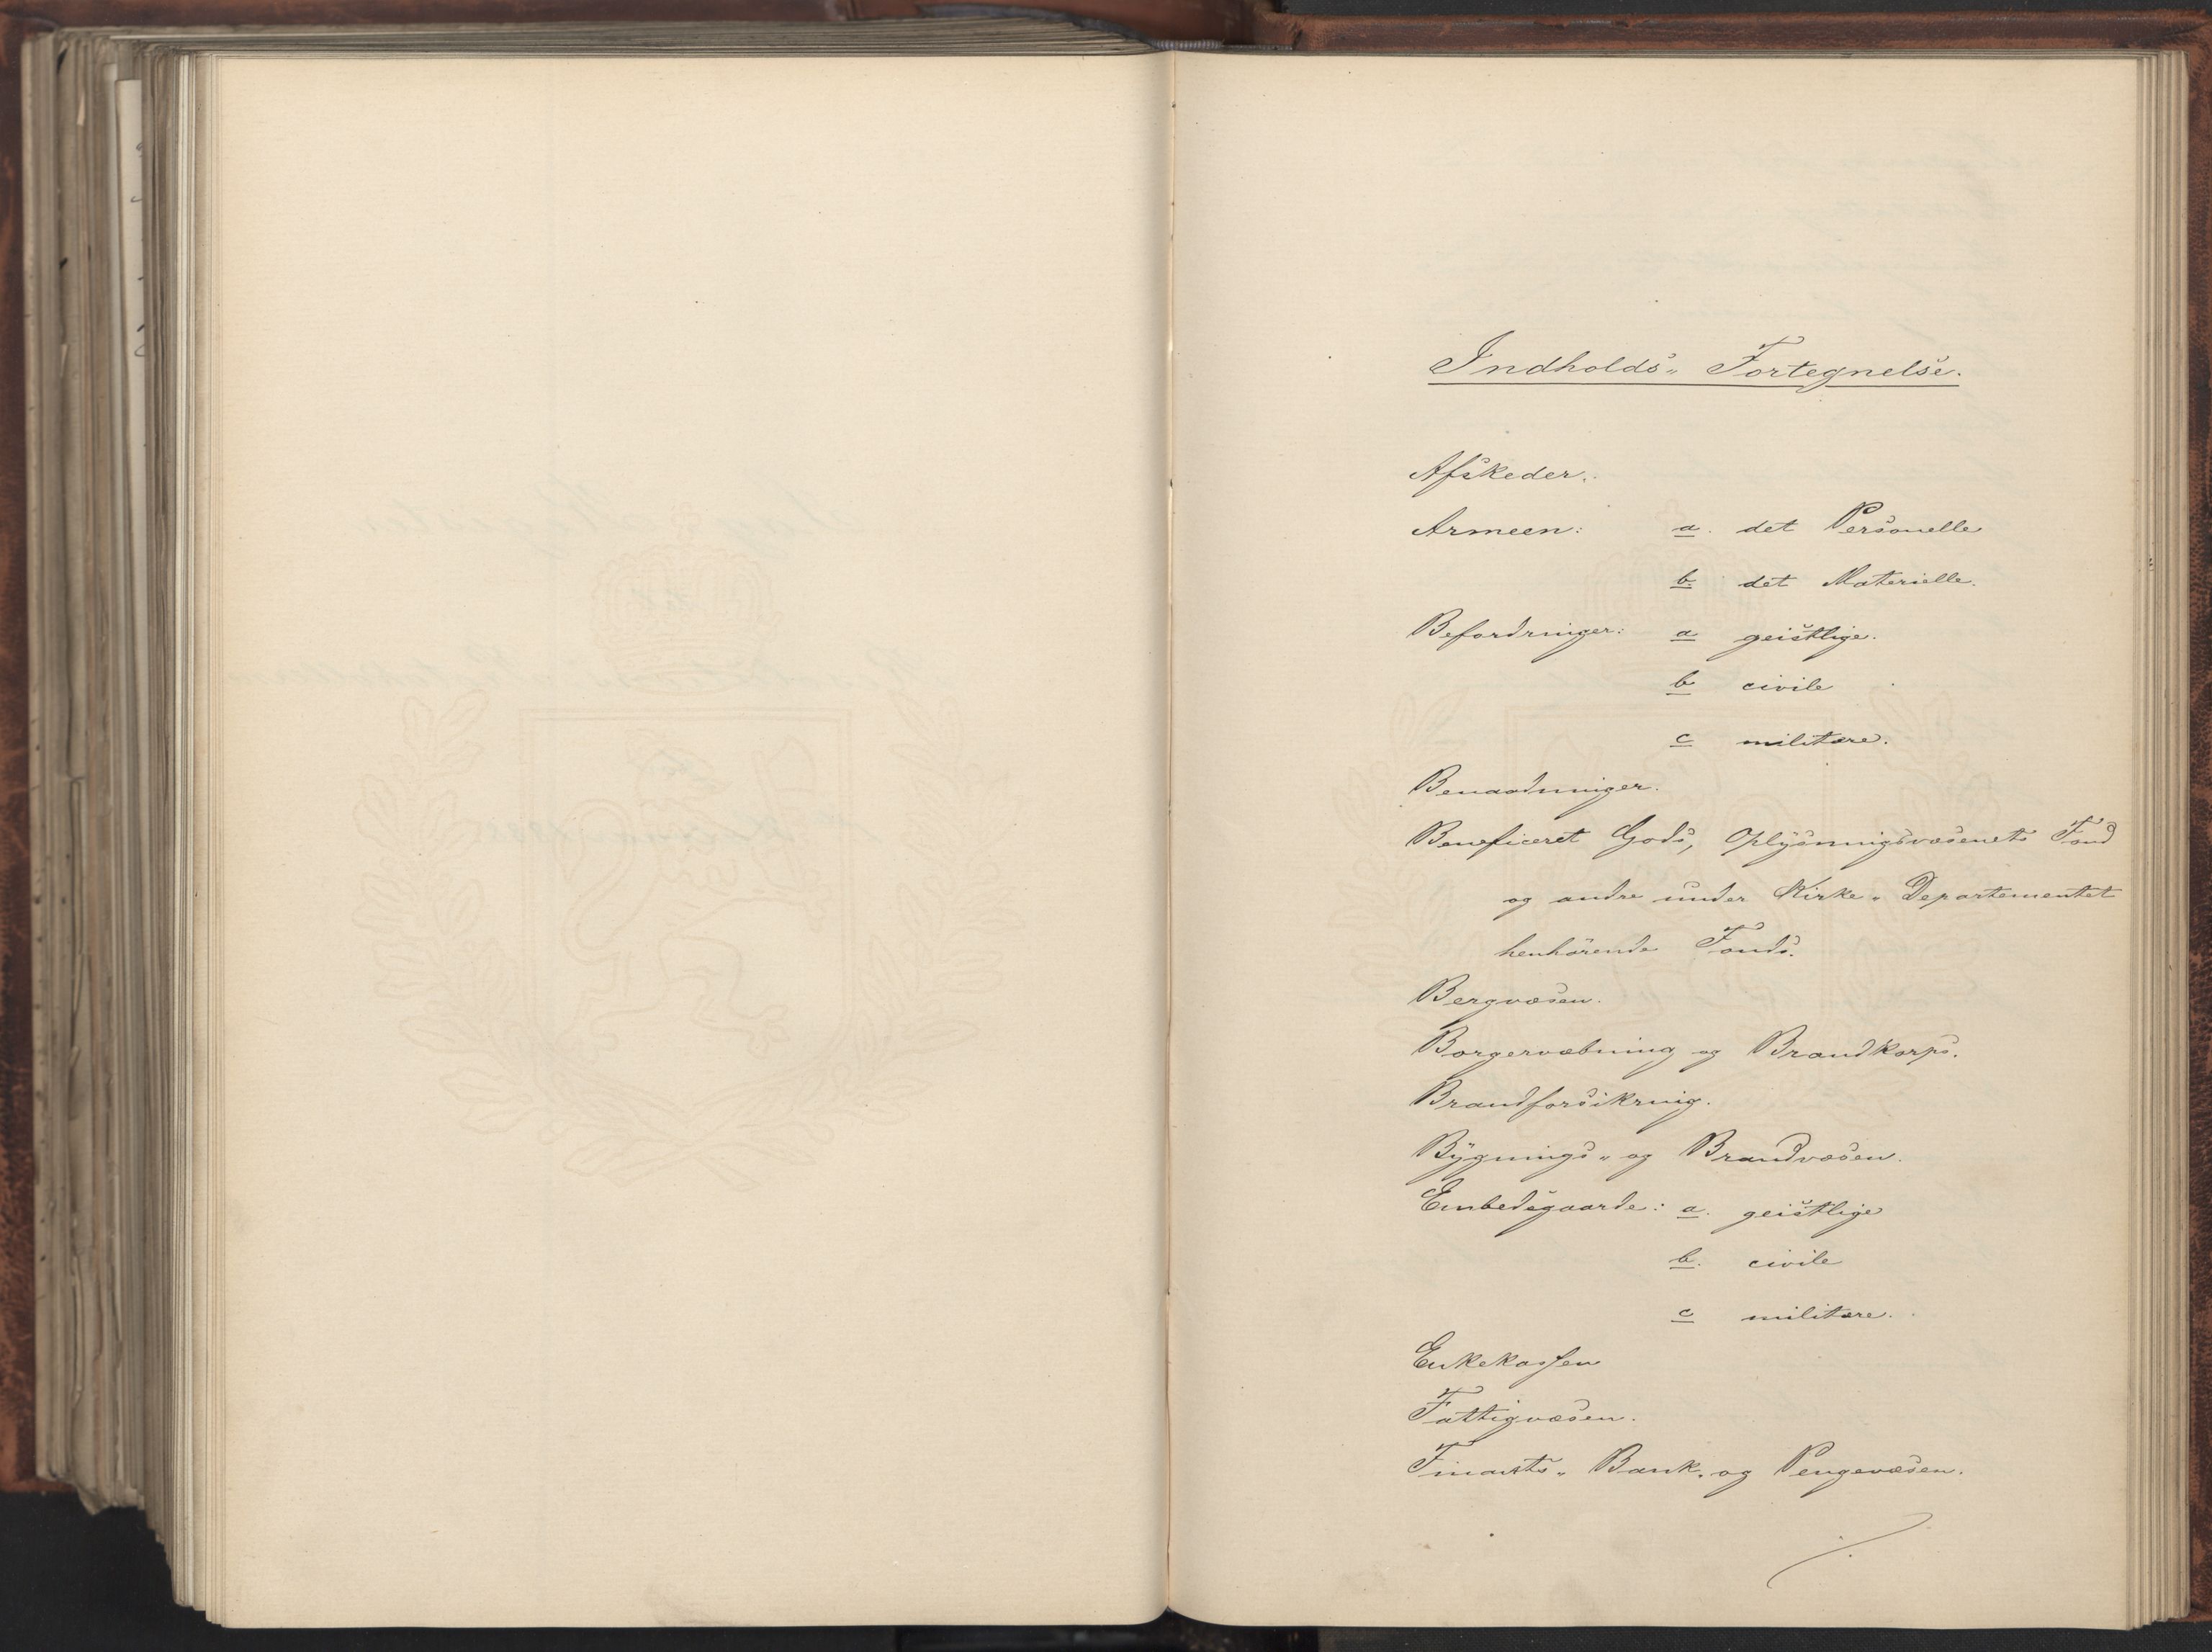 Indholds„ Fortegnelse.
Afskeder.
Armeen: a. det Personelle
b. det Materielle.
Befordringer: a geistlige.
b civile
c militære.
Benaadninger.
Beneficeret Gods, Oplysningsvæsenets Fond
og andre under Kirke„ Departementet
henhörende Fonds.
Bergvæsen.
Borgervæbning og Brandkorps.
Brandforsikring.
Bygnings„ og Brandvæsen.
Embedsgaarde: a. geistlige
b. civile
c militære.
Enkekassen
Fattigvæsen.
Finants„ Bank„ og Pengevæsen.